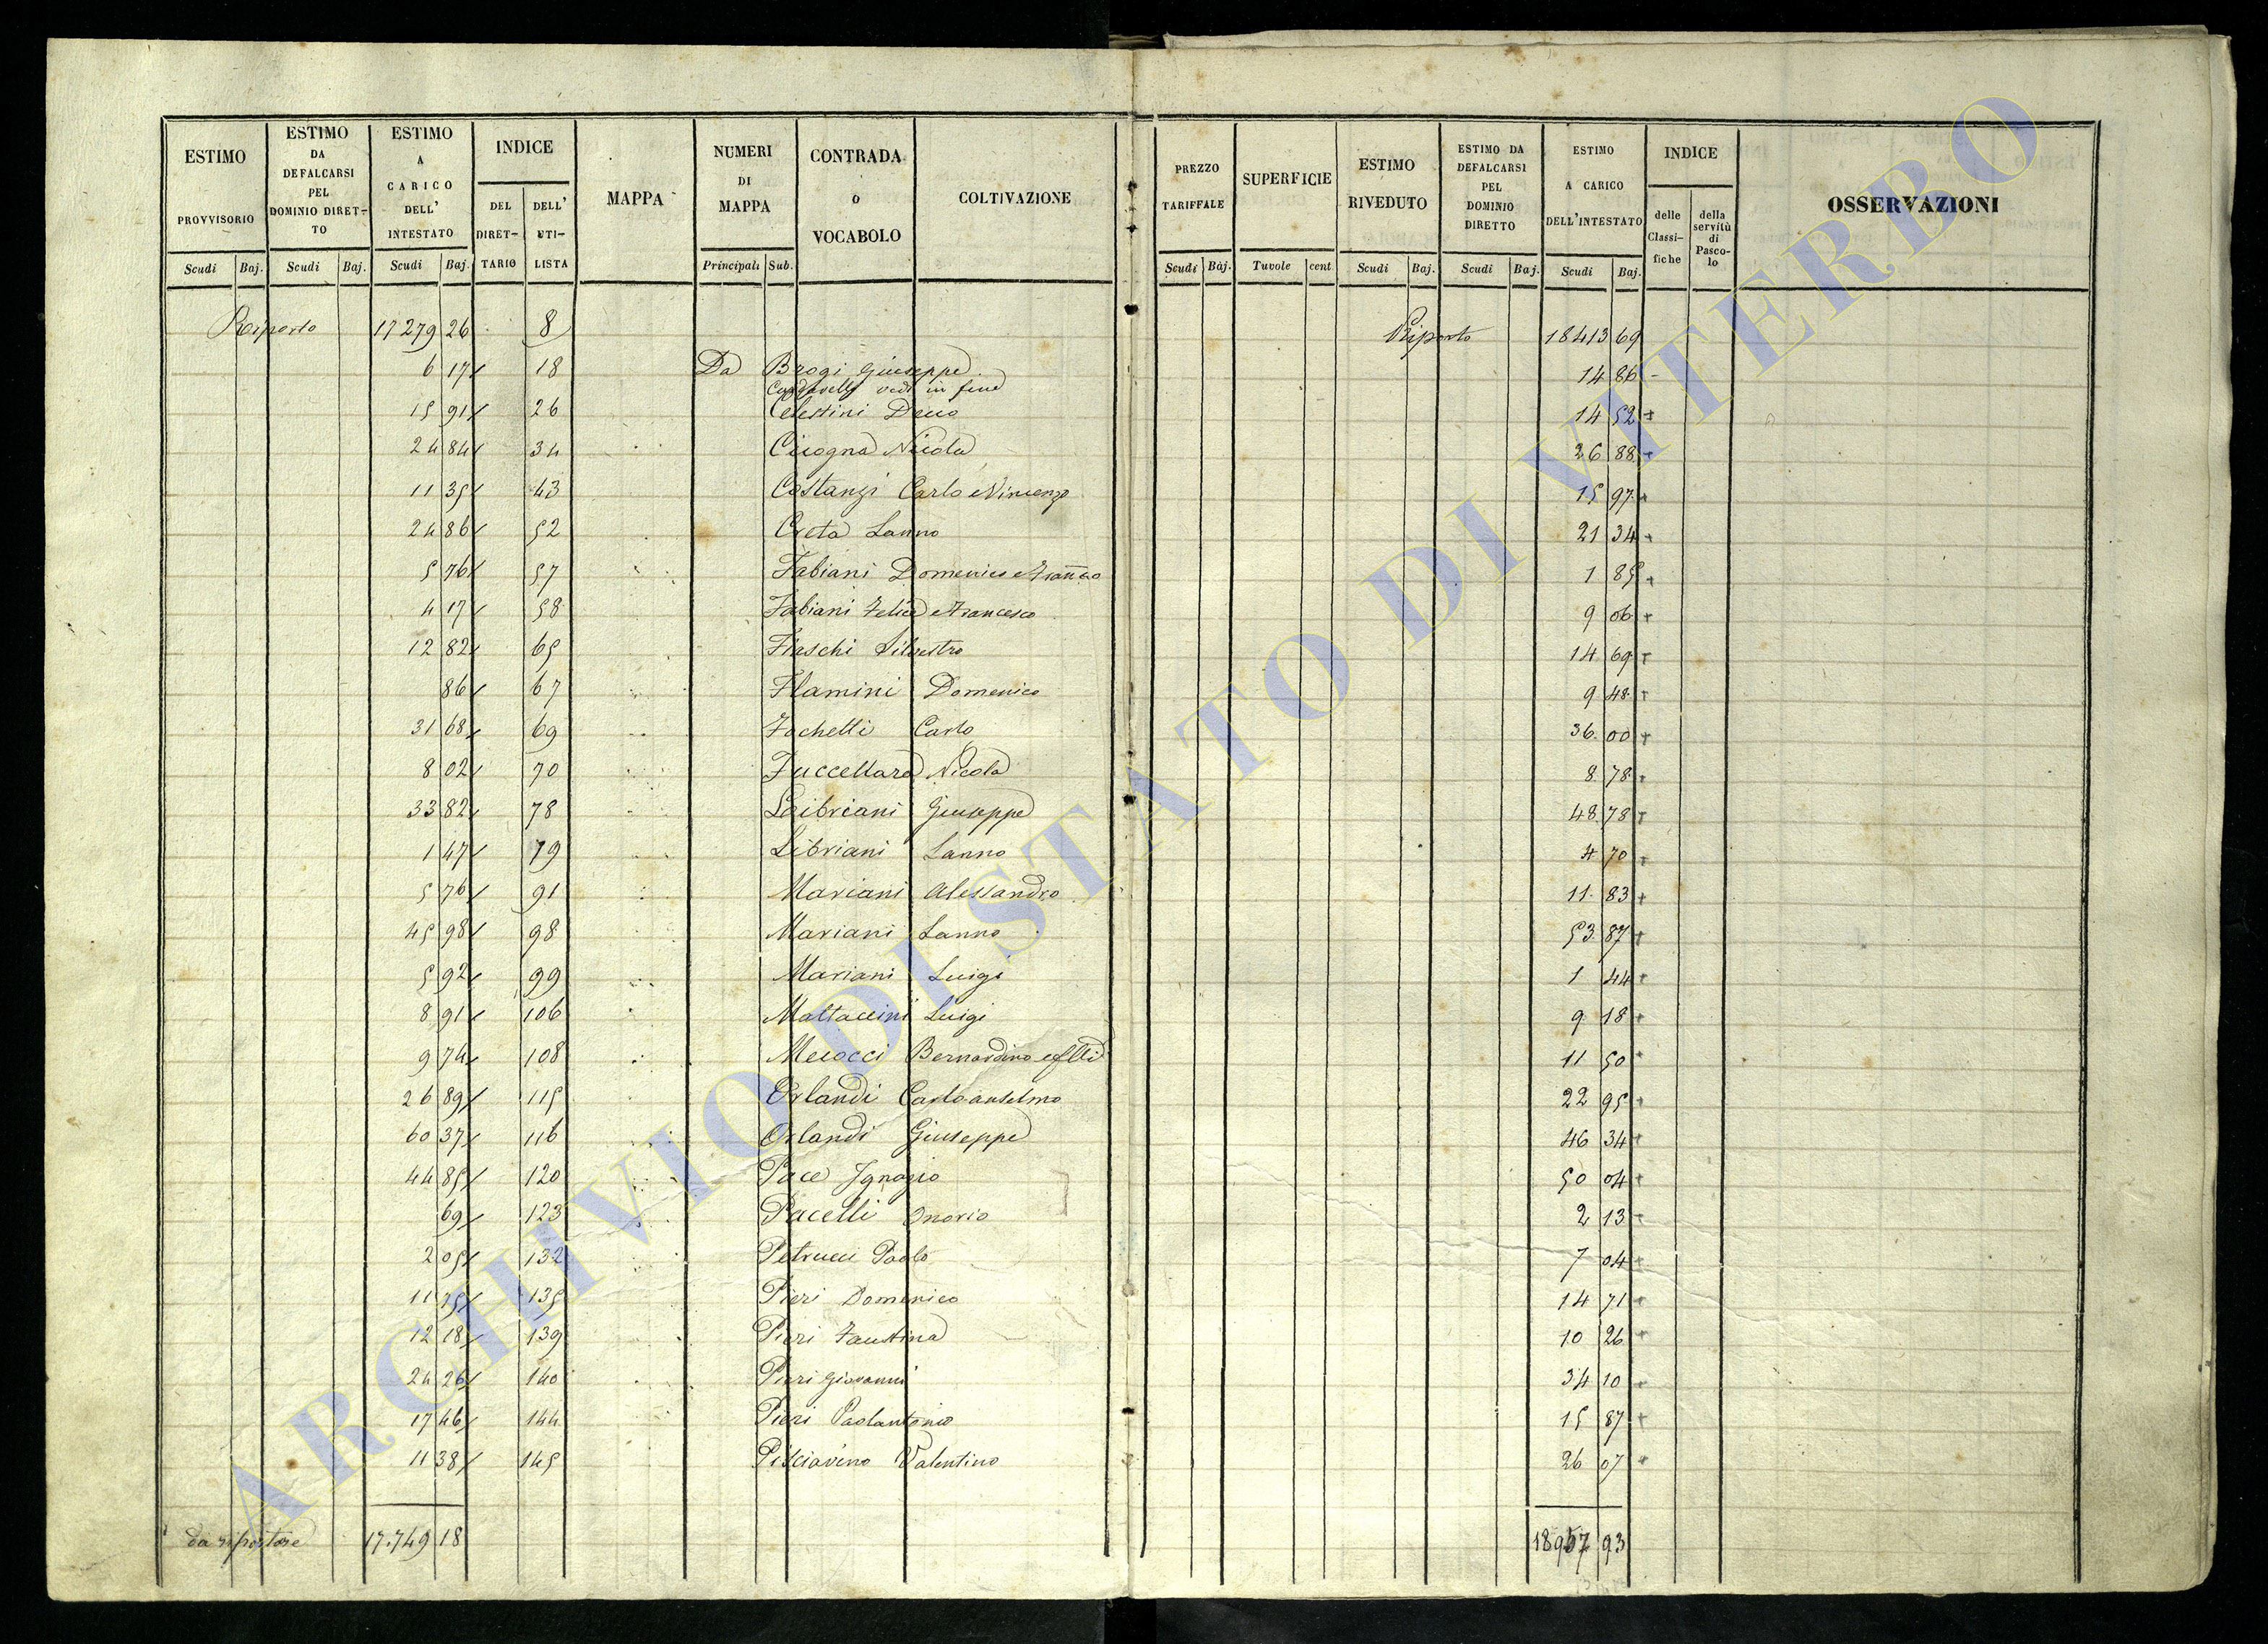 ESTIMO PROVVISORIO | ESTIMO DA DEFALCARSI PEL DOMINIO DIRET-TO | ESTIMO A CARICO DELL' INTESTATO | INDICE DEL DIRET-TARIO | DELL' UTI-LISTA | MAPPA | NUMERI DI MAPPA | CONTRADA o VOCABOLO | COLTIVAZIONE | PREZZO TARIFFALE | SUPERFICIE | ESTIMO RIVEDUTO | ESTIMO DA DEFALCARSI PEL DOMINIO DIRETTO | ESTIMO A CARICO DELL'INTESTATO | INDICE delle Classi-fiche | della servitù di Pasco-lo | OSSERVAZIONI
Scudi Baj. | Scudi Baj. | Scudi Baj. | Principali Sub. | Scudi Baj. | Tavole cent | Scudi Baj. | Scudi Baj. | Scudi Baj.
Riporto 17279 26 8 Riporto 18413 69
6 17 18 Da Brogi Giuseppe 14 86
vedi in fine
15 91 26 Celestini Decio 14 52
24 84 34 Cicogna Nicola 26 88
11 35 43 Costanzi Carlo e Vincenzo 15 97
24 86 52 Creta Sanno 21 34
5 76 57 Fabiani Domenico e Franco 1 85
4 17 58 Fabiani Felice e Francesco 9 06
12 82 65 Fiaschi Silvestro 14 69
86 67 Flamini Domenico 9 48
31 68 69 Fochetti Carlo 36 00
8 02 70 Fuccellara Nicola 8 78
33 82 78 Leibriani Giuseppe 48 78
1 47 79 Libriani Sanno 4 70
5 76 91 Mariani Alessandro 11 83
45 98 98 Mariani Sanno 53 87
5 92 99 Mariani Luigi 1 44
8 91 106 Mattaccini Luigi 9 18
9 74 108 Mecocci Bernardino e flli 11 50
26 89 115 Orlandi Carlo anselmo 22 95
60 37 116 Orlandi Giuseppe 46 34
44 85 120 Pace Ignazio 50 04
69 123 Pacelli Onorio 2 13
2 05 132 Petrucci Paolo 7 04
11 75 135 Pieri Domenico 14 71
12 18 139 Pieri Faustina 10 26
24 26 140 Pieri Giovanni 34 10
17 46 144 Pieri Paolantonio 15 87
11 38 145 Pisciavino Valentino 26 07
da riportare 17.749 18 18957 93
ARCHIVIO DI STATO DI VITERBO